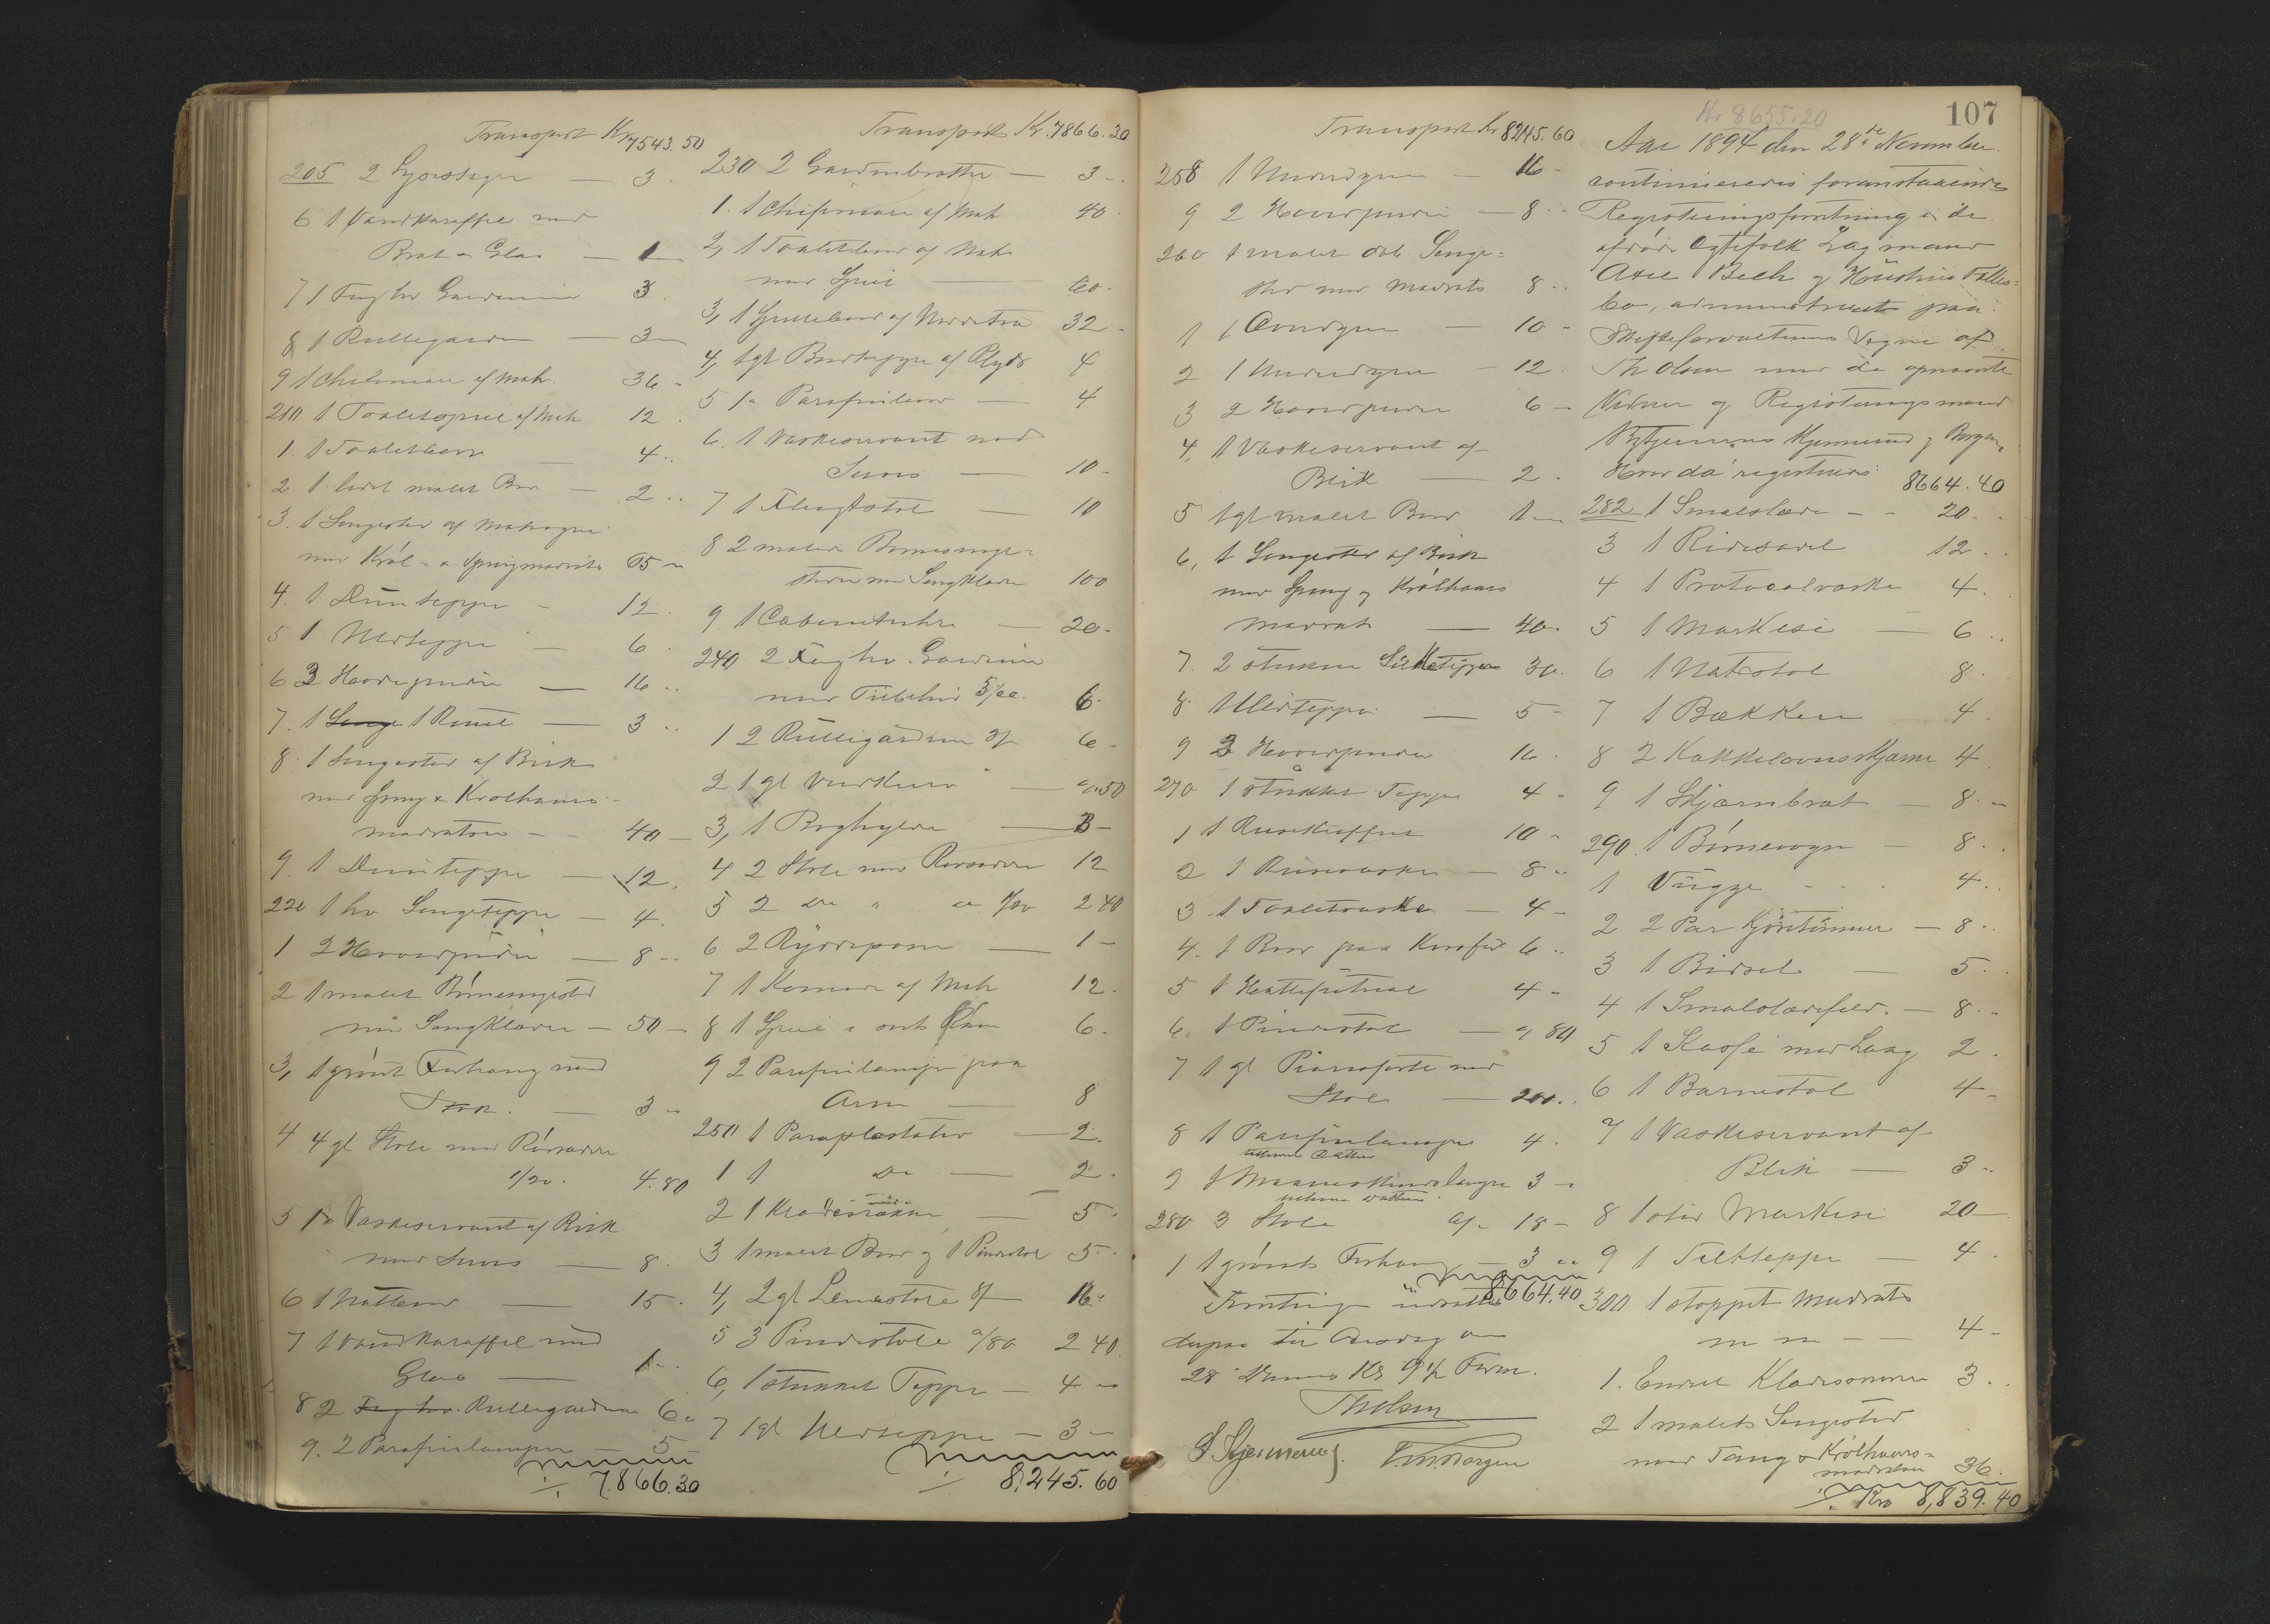 Transport Kr 7543.50
205 2 Lysestager — 3.
6 1 Vandkaraffel med
Bret & Glas — 1 —
7 1 Fag hv Gardiner 3.
8 1 Rullegardin — 3 —
9 1 Chiffoniere af Mah. 36 -
210 1 Toiletspeil af Mah 12.
1 1 Toiletbord — 4..
2 1 lidet malet Bord — 2..
3. 1 Sengested af Mahogni
med Krøl- & Springmadrats 65 -
4. 1 Duntæppe - 12.
5 1 Uldteppe — 6.
6 3 Hovedpuder — 16..
7. 1 1 Rullet — 3..
8. 1 Sengested af Birk
med Spring & Krølhaars-
madratser - - 40 —
9. 1 Dunteppe — 12.
220 1 hv Sengeteppe — 4.
1 2 Hovedpuder — 8..
2 1 malet Børnesengested
med Sengklæder — 50 —
3, 1 grønt Forhang med
— 3 -
4 4 gl Stole med Rørsæder
1/20. 4.80
5 1 Vaskeservant af Birk
med Servis — 8.
6 1 Natbord — 15.
7 1 Vandkaraffel med
Glas — 1..
8 2 Fag hv. Rullegardiner 6.
9. 2 Parafinlamper — 5 —
./. 7.866.30
Transport Kr. 7866.30
230 2 Gardinbretter — 3 -.
1. 1 Chiffoniere af Mah 40.
2, 1 Toiletbord af Mah
med Speil — 60-
3, 1 Spillebord af Nøddetræ 32 -
4, 1 gl Bordteppe af Plyds 4
5 1 Parafinlampe — 4
6. 1 Vaskeservant med
Servis — 10 -
7 1 Flugtstol — 10
8 2 malede Børnesenge-
steder med Sengklæder 100
9 1 Cabinetuhr — 20-
240 2 Fag hv. Gardiner
med Tilbehør 6.
1 2 Rullegardiner 3/ 6-
2 1 gl Vadskurv — 0.50
3, 1 Boghylde — 3-
4 2 Stole med Rørsæder 12
5 2 Do " 1/20 2 40
6 2 — 1 —
7 1 Komode af Mah 12.
8 1 Speil i sort Ram 6.
9 2 Parafinlamper paa
Arm — 8
250 1 Paraplystativ — 2.
1 1 Do — 2.
2 1 — 5 -
3 1 malet Bord og 1 Pindestol 5..
4, 2 gl Lenestole 8/ 16.
5 3 Pindestole a/80 2 40.
6, 1 stukket Teppe — 4 -
7 1 gl Uldteppe — 3 —
./. 8,245.60
Transport Kr 8245.60
258 1 Underdyne — 16 -
9 2 Hovedpuder — 8..
260 1 malet dob. Senge-
sted med Madrats 8..
1 1 Overdyne — 10 -
2 1 Underdyne — 12.
3 2 Hovedpuder 6 —
4, 1 Vaskeservant af
Blik — 2.
5 1 gl malet Bord 1 —
6, 1 Sengested af Birk
med Spring og Krølhaars
madrats — 40.
7. 2 stukne Silketepper 30.
8 1 Uldteppe — 5 -
9 3 Hovedpuder 16.
270 1 stukket Teppe 4 -
1 1 Reisekuffert 10 -
2 1 Reisevæske — 8..
3. 1 Toiletvæske — 4 -
4. 1 Bord paa Krydsfod 6..
5 1 Hattefutral 4 -
6. 1 Pindestol — 0 80
7 1 gl Pianoforte med
Stol — 200..
8 1 Parafinlampe 4.
9 1 Maaneskinslampe 3 -
280 3 Stole a/6 18 —
1 1 grønt Forhang — 3..
8664.40
Forretningen udsattes
derpaa til Onsdag den
28 dennes Kl 9½ Form.
Th Olsen
107
Kr 8655.20
Aar 1894 den 28de November
continueredes foranstaaende
Registreringsforretning i de
afdøde Ægtefolk Lagmand
Axel Bech og Hustrus Fælles-
bo, administreret paa
Skifteforvalterens Vegne af
Th Olsen med de opnævnte
Vidner og Registreringsmænd
Kjennerud og Borgen,
Hvor da registreres 8664.40
282 1 Smalslæde - - 20-.
3 1 Ridesadel 12..
4 1 Protocolvæske 4.
5 1 Markise — 6..
6 1 Natstol 8.
7 1 Bækken 4.
8 2 Kakkelovnsskjærme 4.
9 1 Skjærmbræt — 8.-
290. 1 Børnevogn — 8..
1 Vugge - - - 4..
2 2 Par Kjøretømmer — 8..
3 1 Bidsel — 5..
4 1 Smalslædefeld. — 8..
5 1 Kasse med Laag 2.
6 1 Barnestol 4 -
7 1 Vaskeservant af
Blik — 3..
8 1 stor Markise 20 —
9 1 Teltteppe — 4.
300 1 stoppet Madrats
m m — — 4 -
1. Endel Klædesommer 3..
2 1 malet Sengested
med Tang & Krølhaars-
madratser 36.
./. Kro 8,839.40